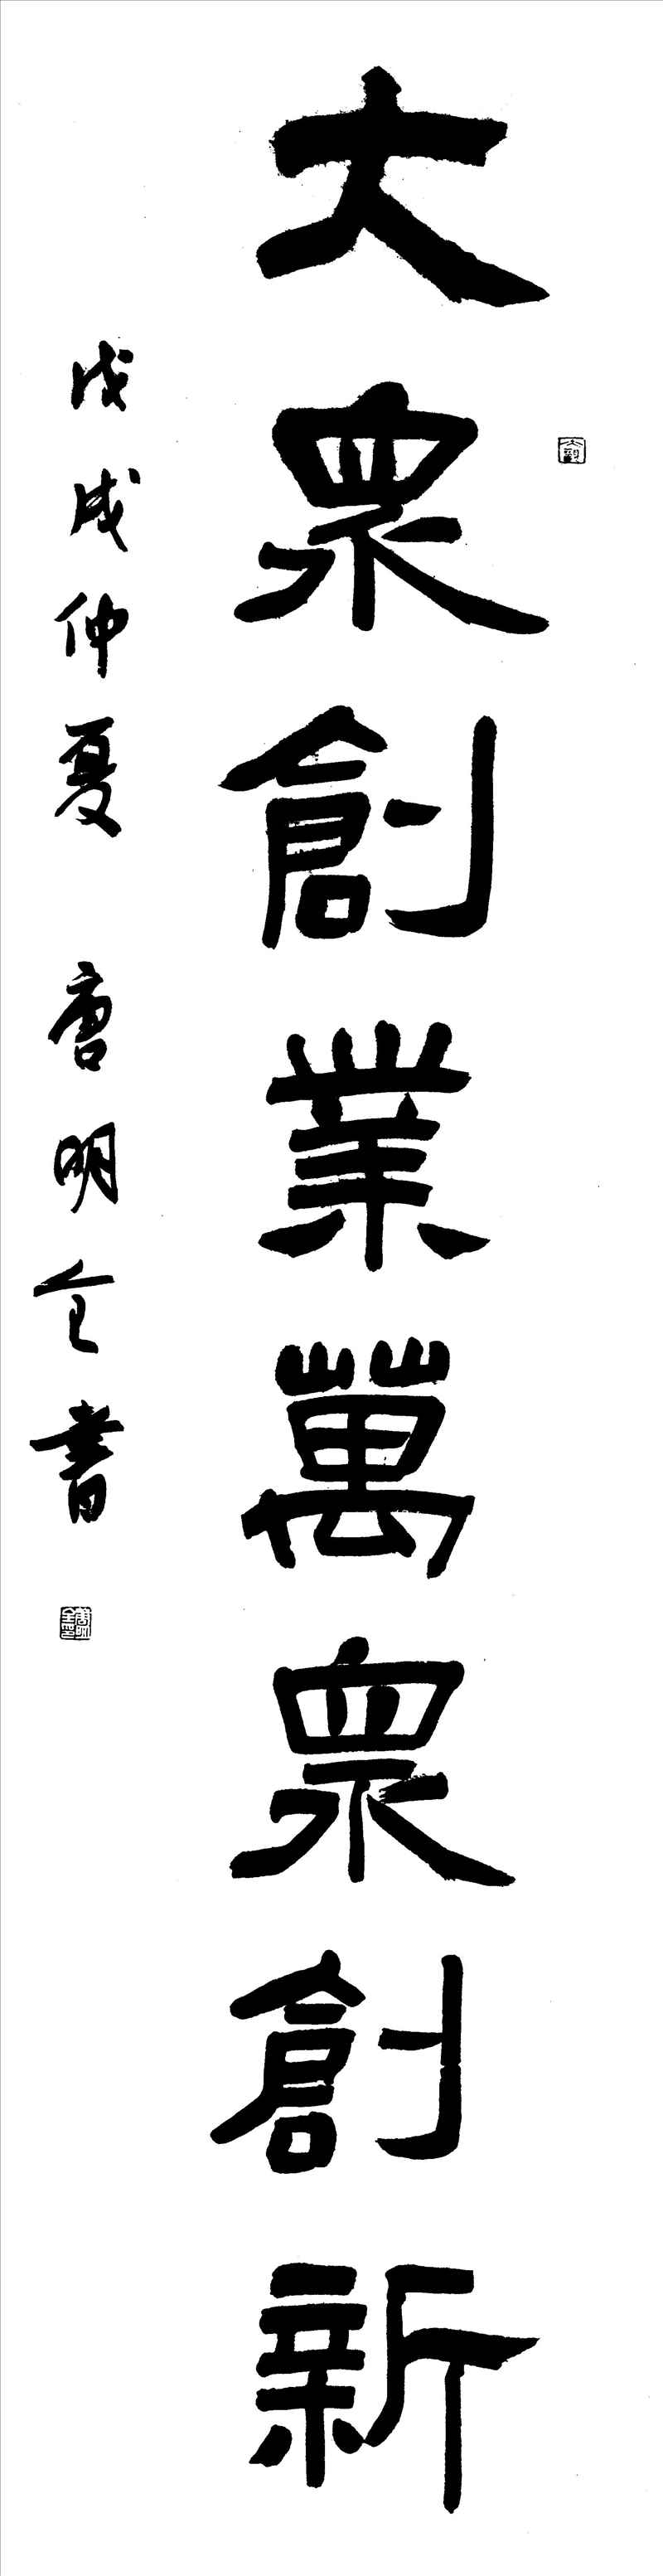 大眾創業萬眾創新
戊戌仲夏 唐明全書